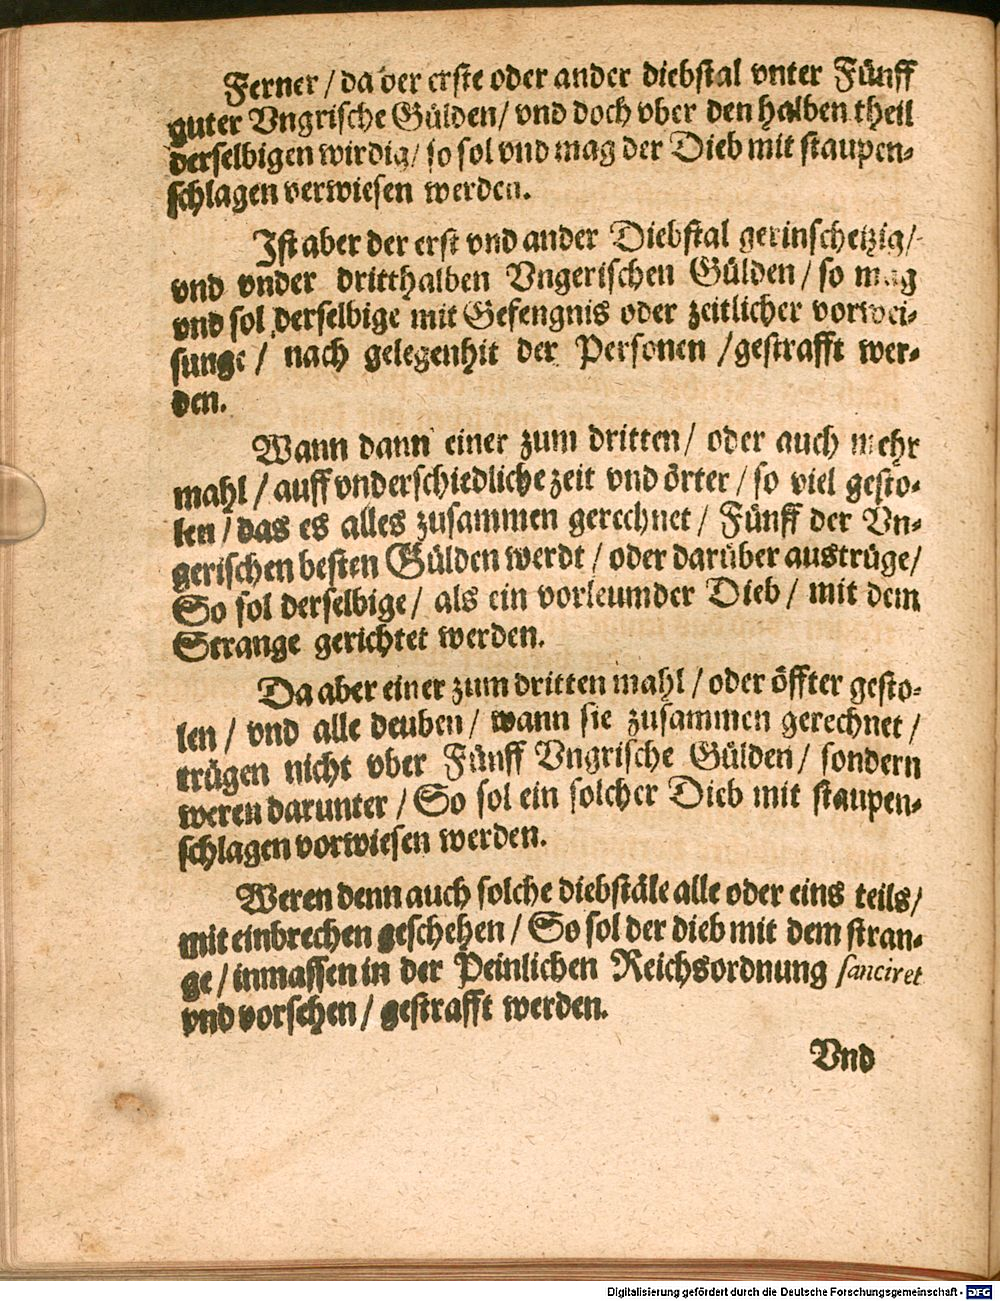 Ferner / da der erste oder ander diebstal vnter Fünff
guter Vngrische Gülden / vnd doch vber den halben theil
derselbigen wirdig / so sol vnd mag der Dieb mit staupen-
schlagen verwiesen werden.
Ist aber der erst vnd ander Diebstal gerinschetzig /
vnd vnder dritthalben Vngerischen Gülden / so mag
vnd sol derselbige mit Gefengnis oder zeitlicher vorwei-
sunge / nach gelegenhit der Personen / gestrafft wer-
den.
Wann dann einer zum dritten / oder auch mehr
mahl / auff vnderschiedliche zeit vnd örter / so viel gesto-
len / das es alles zusammen gerechnet / Fünff der Vn-
gerischen besten Gülden werdt / oder darüber austrüge /
So sol derselbige / als ein vorleumder Dieb / mit dem
Strange gerichtet werden.
Da aber einer zum dritten mahl / oder öffter gesto-
len / vnd alle deuben / wann sie zusammen gerechnet /
trügen nicht vber Fünff Vngrische Gülden / sondern
weren darunter / So sol ein solcher Dieb mit staupen-
schlagen vorwiesen werden.
Weren denn auch solche diebstäle alle oder eins teils /
mit einbrechen geschehen / So sol der dieb mit dem stran-
ge / inmassen in der Peinlichen Reichsordnung sanciret
vnd vorsehen / gestrafft werden.
Vnd
Digitalisierung gefördert durch die Deutsche Forschungsgemeinschaft - DFG